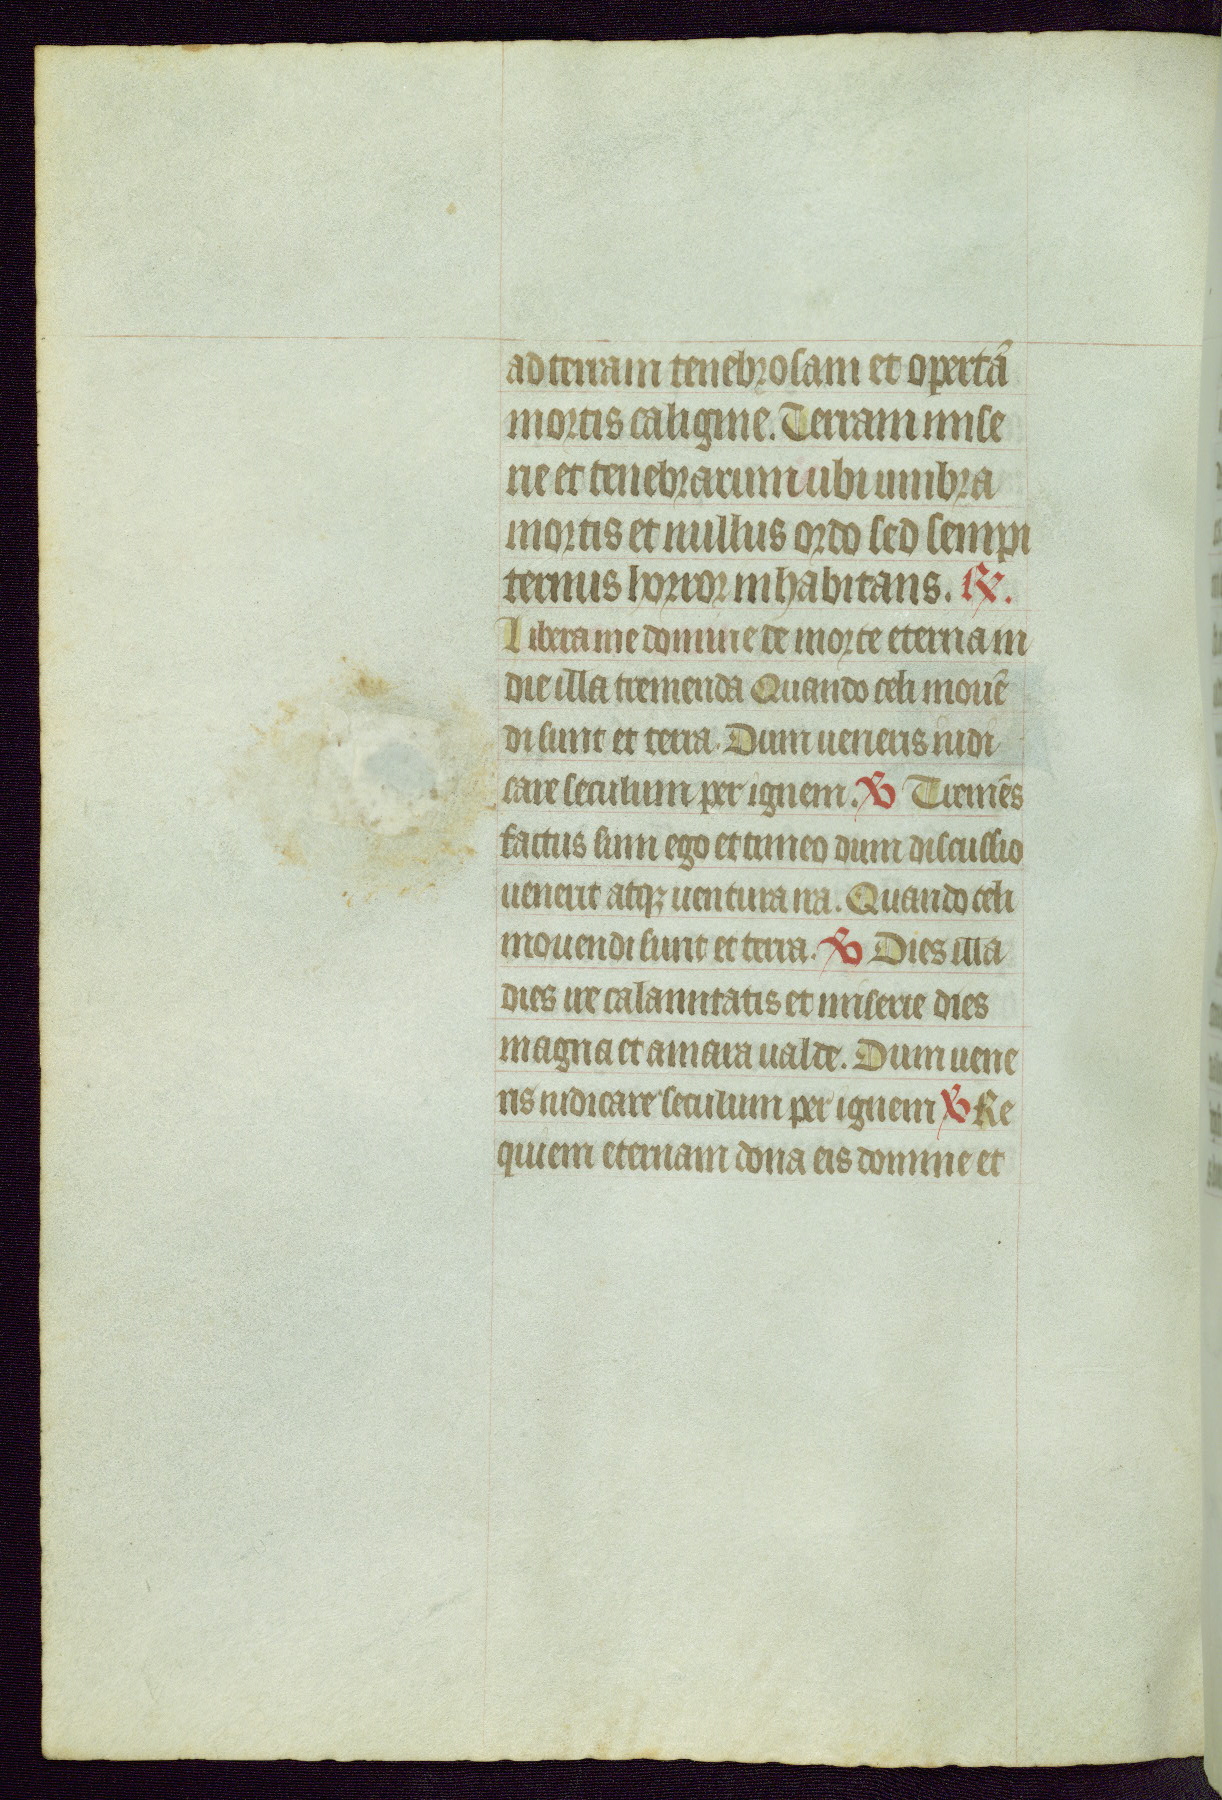 ad terram tenebrosam et opertã
mortis caligine. Terram mise
rie et tenebrarum ubi umbra
mortis et nullus ordo sed sempi
ternus horror inhabitans. ℟.
Libera me domine de morte eterna in
die illa tremenda Quando celi mouẽ
di sunt et terra. Dum ueneris iudi
care seculum per ignem. ℣ Tremẽs
factus sum ego et timeo dum discussio
uenerit atqꝫ uentura ira. Quando celi
mouendi sunt et terra. ℣ Dies illa
dies ire calamitatis et miserie dies
magna et amara ualde. Dum uene
ris iudicare seculum per ignem ℣ Re
quiem eternam dona eis domine et